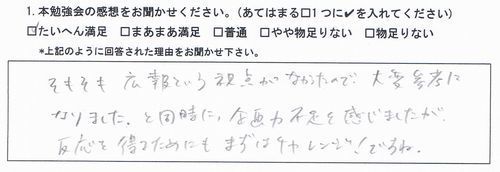 1. 本勉強会の感想をお聞かせください。(あてはまる□1つに✔を入れてください)
☑たいへん満足 □まあまあ満足 □普通 □やや物足りない □物足りない
*上記のように回答された理由をお聞かせ下さい。
そもそも広報という視点がなかったので大変参考に
なりました。と同時に、企画力不足を感じましたが、
反応を得るためにもまずはチャレンジ!ですね。